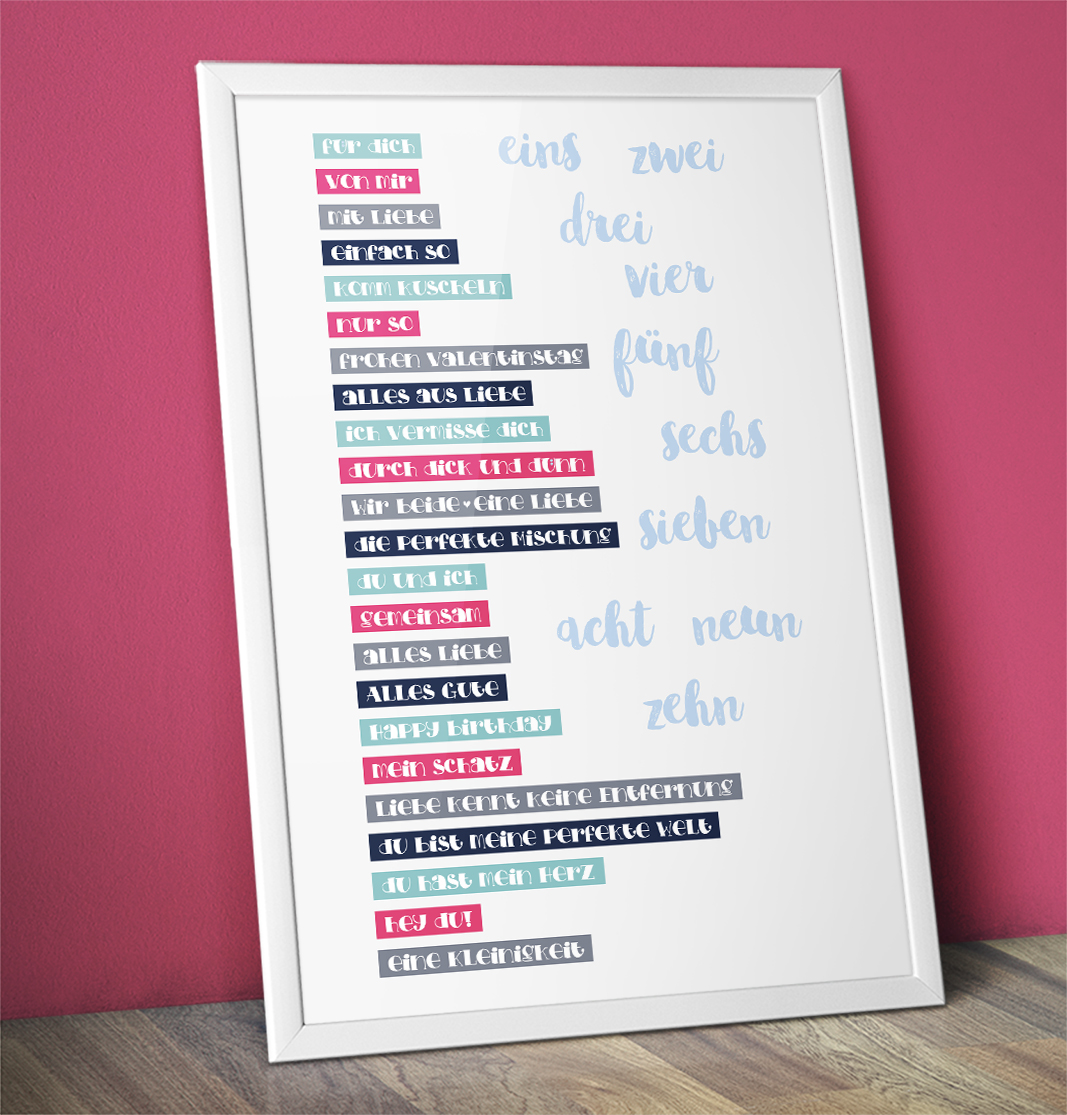 für dich
von mir
mit Liebe
einfach so
komm kuscheln
nur so
frohen Valentinstag
alles aus Liebe
ich vermisse dich
durch dick und dünn
wir beide ♥ eine Liebe
die perfekte Mischung
du und ich
gemeinsam
alles Liebe
Alles Gute
Happy birthday
mein Schatz
Liebe kennt keine Entfernung
du bist meine perfekte Welt
du hast mein Herz
hey du!
eine Kleinigkeit
eins zwei
drei
vier
fünf
sechs
sieben
acht neun
zehn